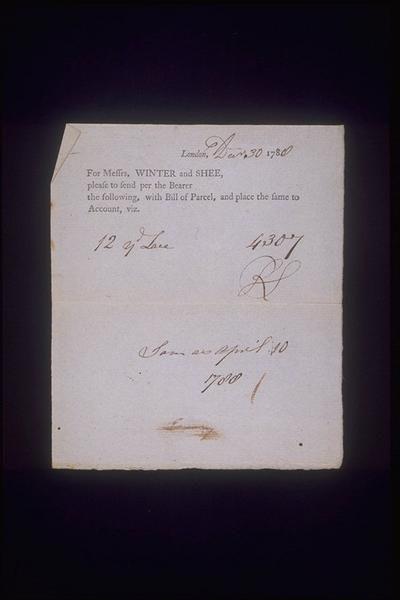 London, Decr. 30 1788
For Meſſrs, WINTER and SHEE,
pleaſe to ſend per the Bearer
the following, with Bill of Parcel, and place the ſame to
Account, viz.
12 yd Lace 4307
RS
Same as April 10
1788